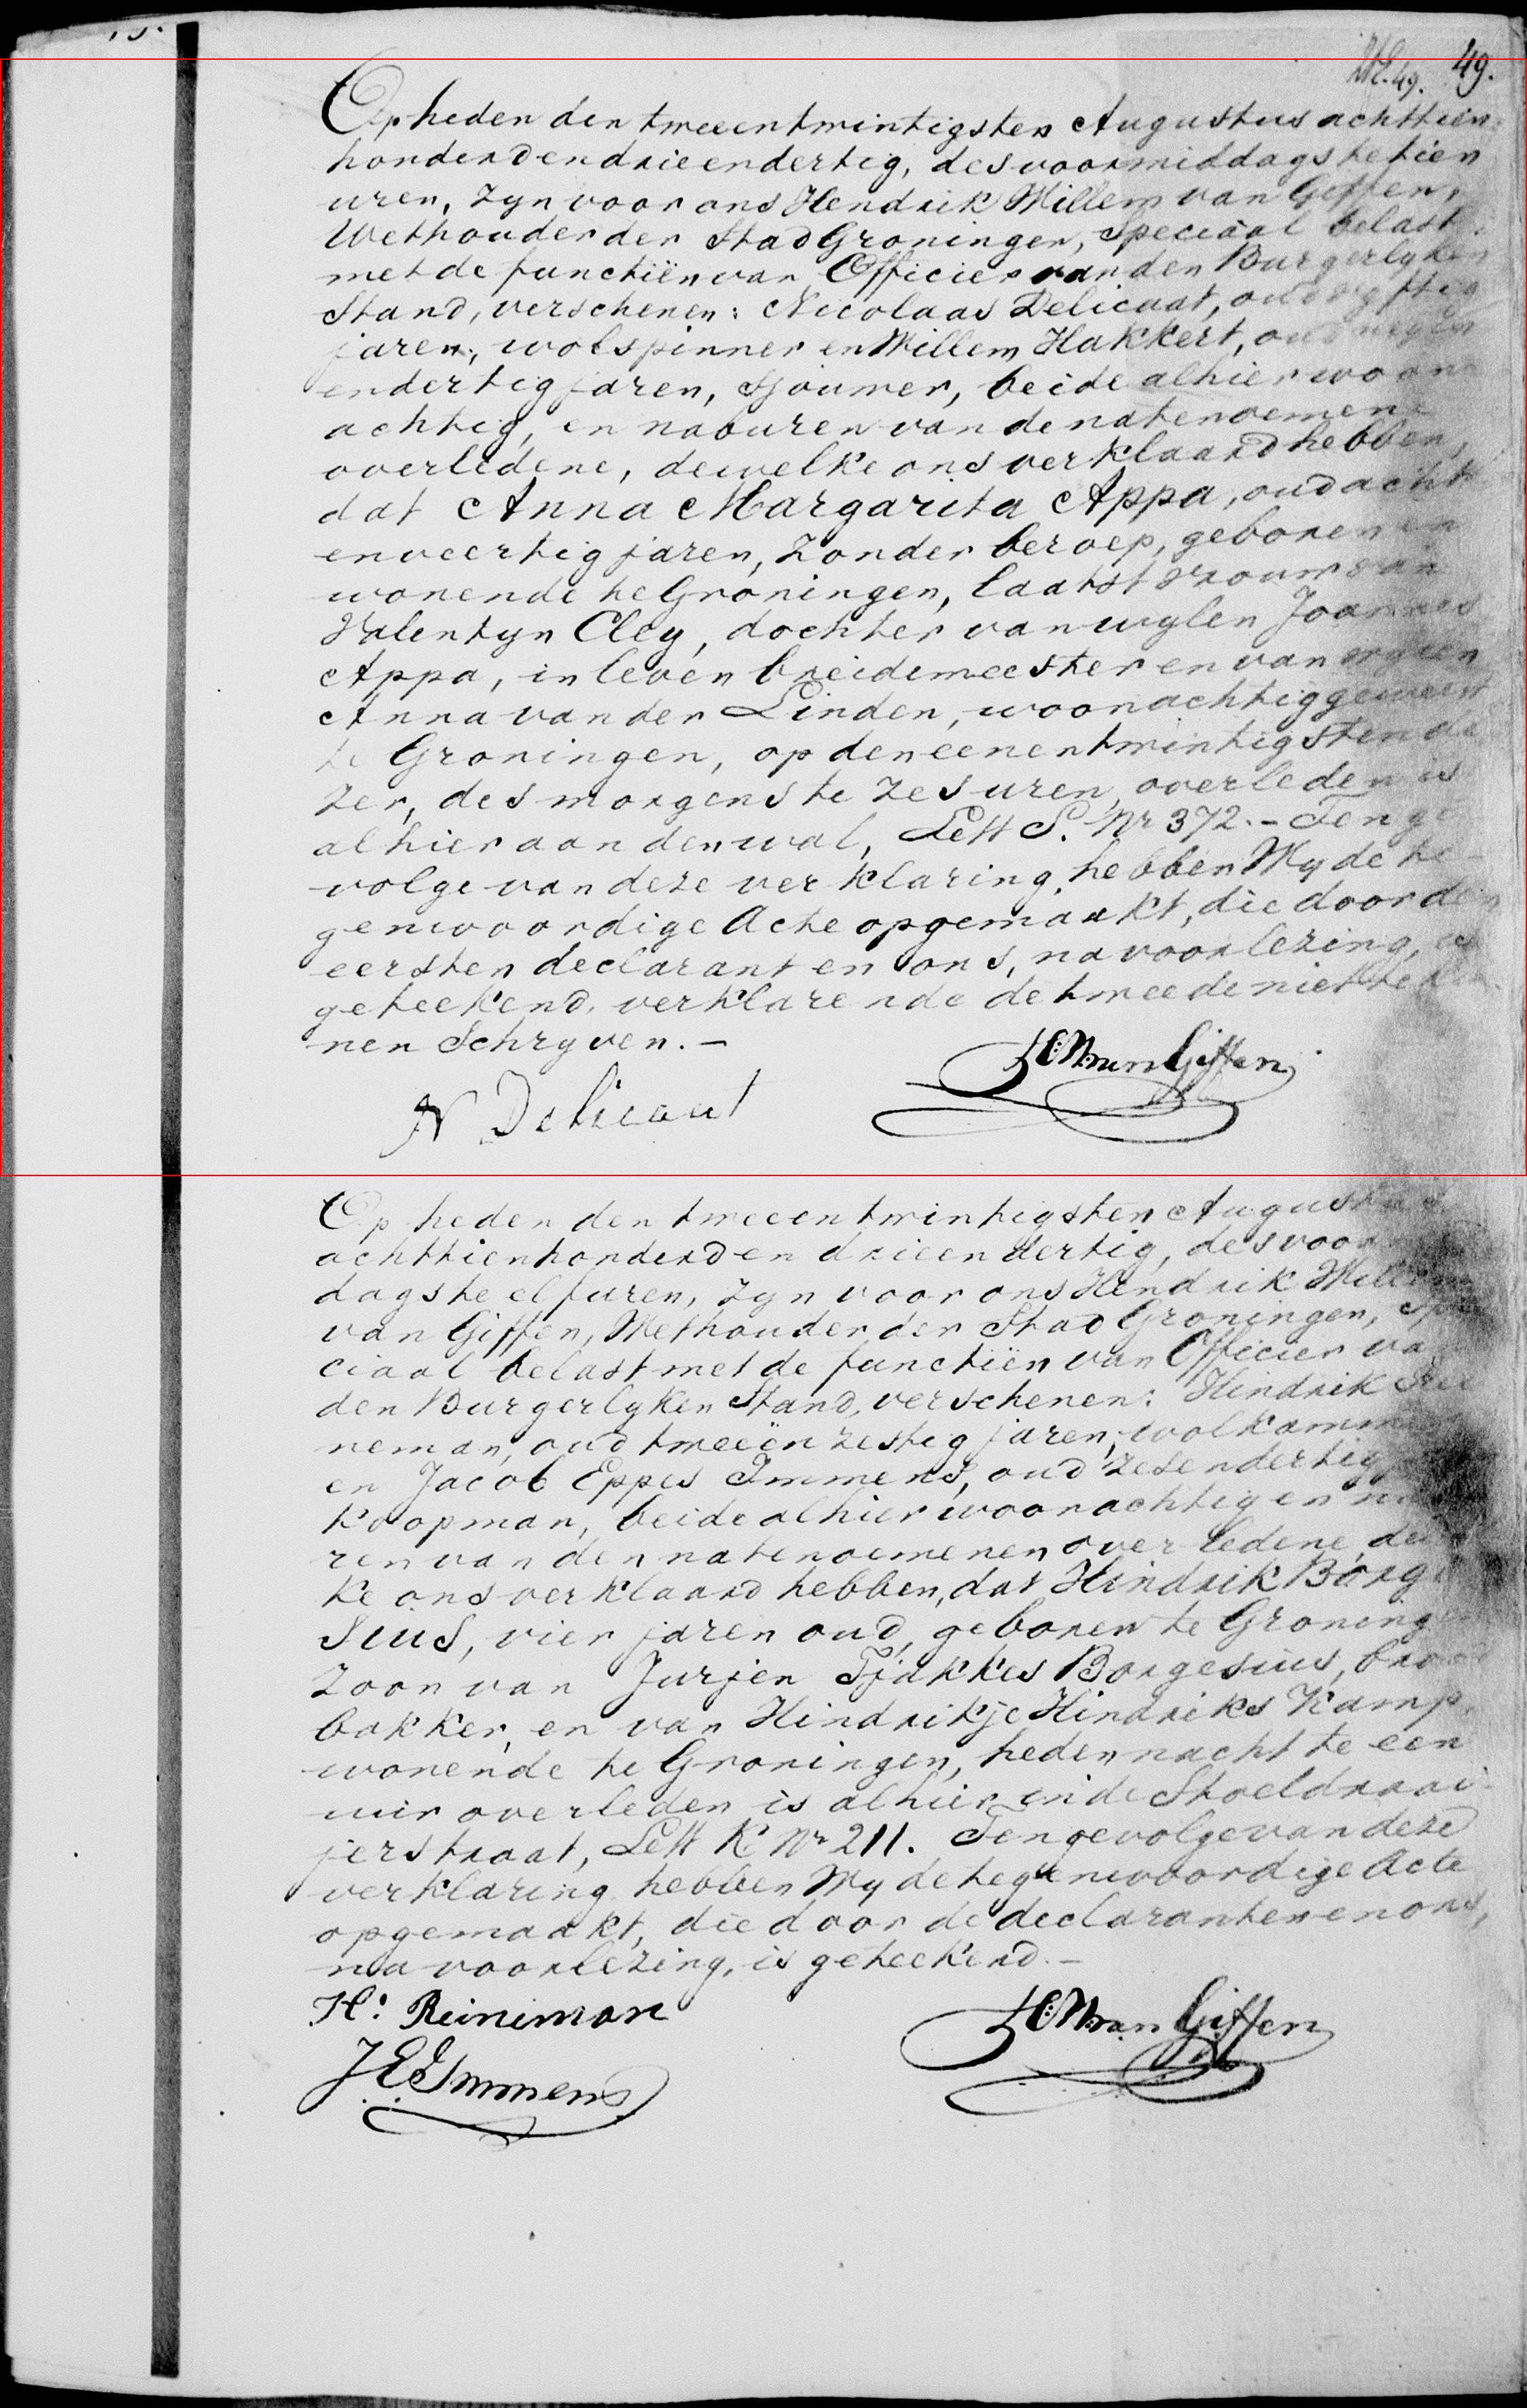 49.
Op heden den tweeentwintigsten Augustus achttien
honderd en drieendertig, des voormiddags te tien
uren, zyn voor ons Hendrik Willem van Giffen,
Wethouder der Stad Groningen, Speciaal belast
met de functiën van Officier van den Burgerlyken
Stand, verschenen: Nicolaas Delicaat, oud vyftig
jaren, wolspinner en Willem Hakkert, oud negen
endertig jaren, sjouwer, beide alhier woon
achtig, en naburen van de natenoemene
overledene, dewelke ons verklaard hebben,
dat Anna Margarita Appa, oud acht
enveertig jaren, zonder beroep, geboren en
wonende te Groningen, laatst vrouw van
Valentyn Cley, dochter van wylen Joannes
Appa, in leven breidemeester en van wylen
Anna van der Linden, woonachtig geweest
te Groningen, op den eenentwintigsten de
zer, des morgens te zes uren, overleden is
alhier aan den wal, Lett S. Nr 372. – Ten ge
volge van deze verklaring, hebben Wy de te
genwoordige Acte opgemaakt, die door den
eersten declarant en ons, na voorlezing, is
geteekend, verklarende de tweede niet te kun
nen Schryven. –
HW van Giffen
N Delicaat
Op heden den tweeentwintigsten Augustus
achttienhonderd en drieendertig, des voor
dags te elf uren, zyn voor ons Hendrik Willem
van Giffen, Wethouder der Stad Groningen, Spe
ciaal belast met de functiën van Officier van
den Burgerlyken Stand, verschenen: Hindrik Rei
neman, oud tweeën zestig jaren, wolkammer
en Jacob Eppes Immens, oud zesendertig
koopman, beide alhier woonachtig en
ren van den natenoemenen overledene, dewel
ke ons verklaard hebben, dat Hindrik Borge
sius, vier jaren oud, geboren te Groningen
zoon van Jurjen Tjakkes Borgesius, brood
bakker, en van Hindrikje Hindriks Kamp,
wonende te Groningen, heden nacht te een
uur overleden is alhier in de Stoeldraai
jerstraat, Lett K. Nr 211. Ten gevolge van deze
verklaring hebben Wy de tegenwoordige Acte
opgemaakt, die door de declaranten en ons,
na voorlezing, is geteekend. –
H: Reineman
HW van Giffen
J E Immens